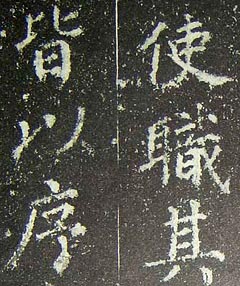 使職其
皆以序